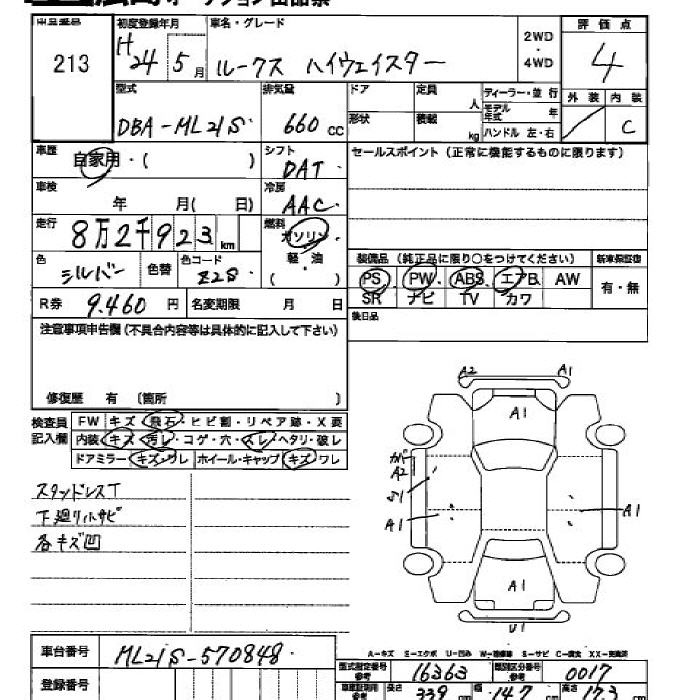 オークション出品票
申込番号 213
初度登録年月 H24年5月
車名・グレード ルークス ハイウェイスター
2WD・4WD
評価点 4
外装 内装 C
型式 DBA-ML21S
排気量 660 CC
ドア 定員 人
形状 積載 kg
ディーラー・並行
モデル年式 年
ハンドル 左・右
車歴 自家用・( )
シフト DAT
セールスポイント(正常に機能するものに限ります)
車検 年 月( 日)
冷房 AAC
走行 8万2千923 km
燃料 ガソリン 軽・油 ( )
色 シルバー 色替 色コード Z2S
装備品(純正品に限り○をつけてください) 新車保証書
PS PW ABS エアB AW 有・無
SR ナビ TV カワ
R券 9.460円 名変期限 月 日
後日品
注意事項申告欄(不具合内容等は具体的に記入して下さい)
修復歴 有 〔箇所 〕
検査員記入欄
FW キズ・飛石・ヒビ割・リペア跡・X要
内装・キズ・汚レ・コゲ・穴・スレ・ヘタリ・破レ
ドアミラー・キズ・ワレ ホイール・キャップ・キズ・ワレ
スタッドレスT
下廻り小サビ
各キズ凹
A2 A1
A1
カバー
A2
S1
A1 A1
A1
U1
A-キズ S-エクボ U-凹み W-補修跡 S-サビ C-腐食 XX-交換済
車台番号 ML21S-570848
型式指定番号 参考 16363 類別区分番号 参考 0017
登録番号
車庫証明用 参考 長さ 339 cm 幅 147 cm 高さ 173 cm